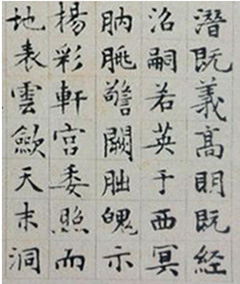 潛既義高明既經
沼嗣若英于西冥
朒朓警闕朏魄示
楊彩軒宮委照而
地表雲歛天末洞